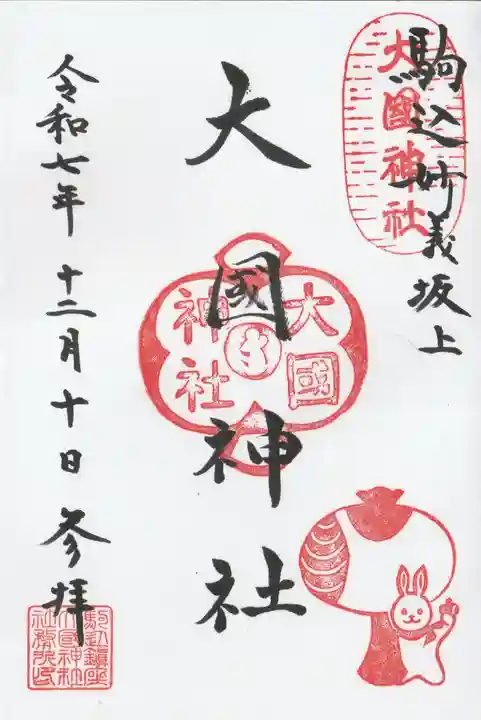 駒込妙義坂上
大國神社
大國神社
大國
神社
令和七年 十二月十日 参拝
駒込鎮座
大國神社
社務所印